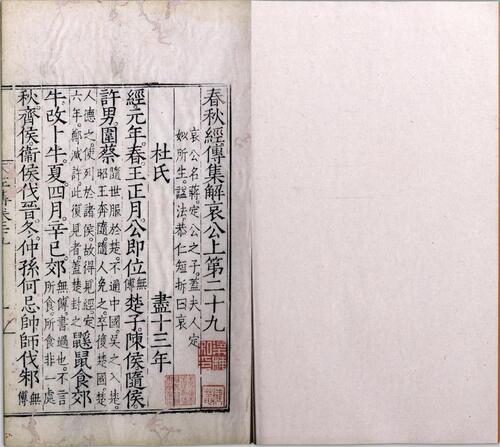 春秋經傳集解哀公上第二十九
哀公名蔣。定公之子。蓋夫人定
姒所生。諡法。恭仁短折曰哀
杜氏　盡十三年
經元年。春。王正月。公即位。無傳楚子。陳侯。隨侯。
許男。圍蔡。隨世服於楚。不通中國。吳之入楚。
昭王奔隨。隨人免之。卒復楚國。楚
人德之。使列於諸侯。故得見經。定
六年。鄭滅許。此復見者。蓋楚封之鼷鼠食郊
牛。改卜牛。夏。四月。辛巳。郊。無傳。書過也。不言
所食。所食非一處
秋。齊侯。衞侯。伐晉。冬。仲孫何忌帥師伐邾。無傳